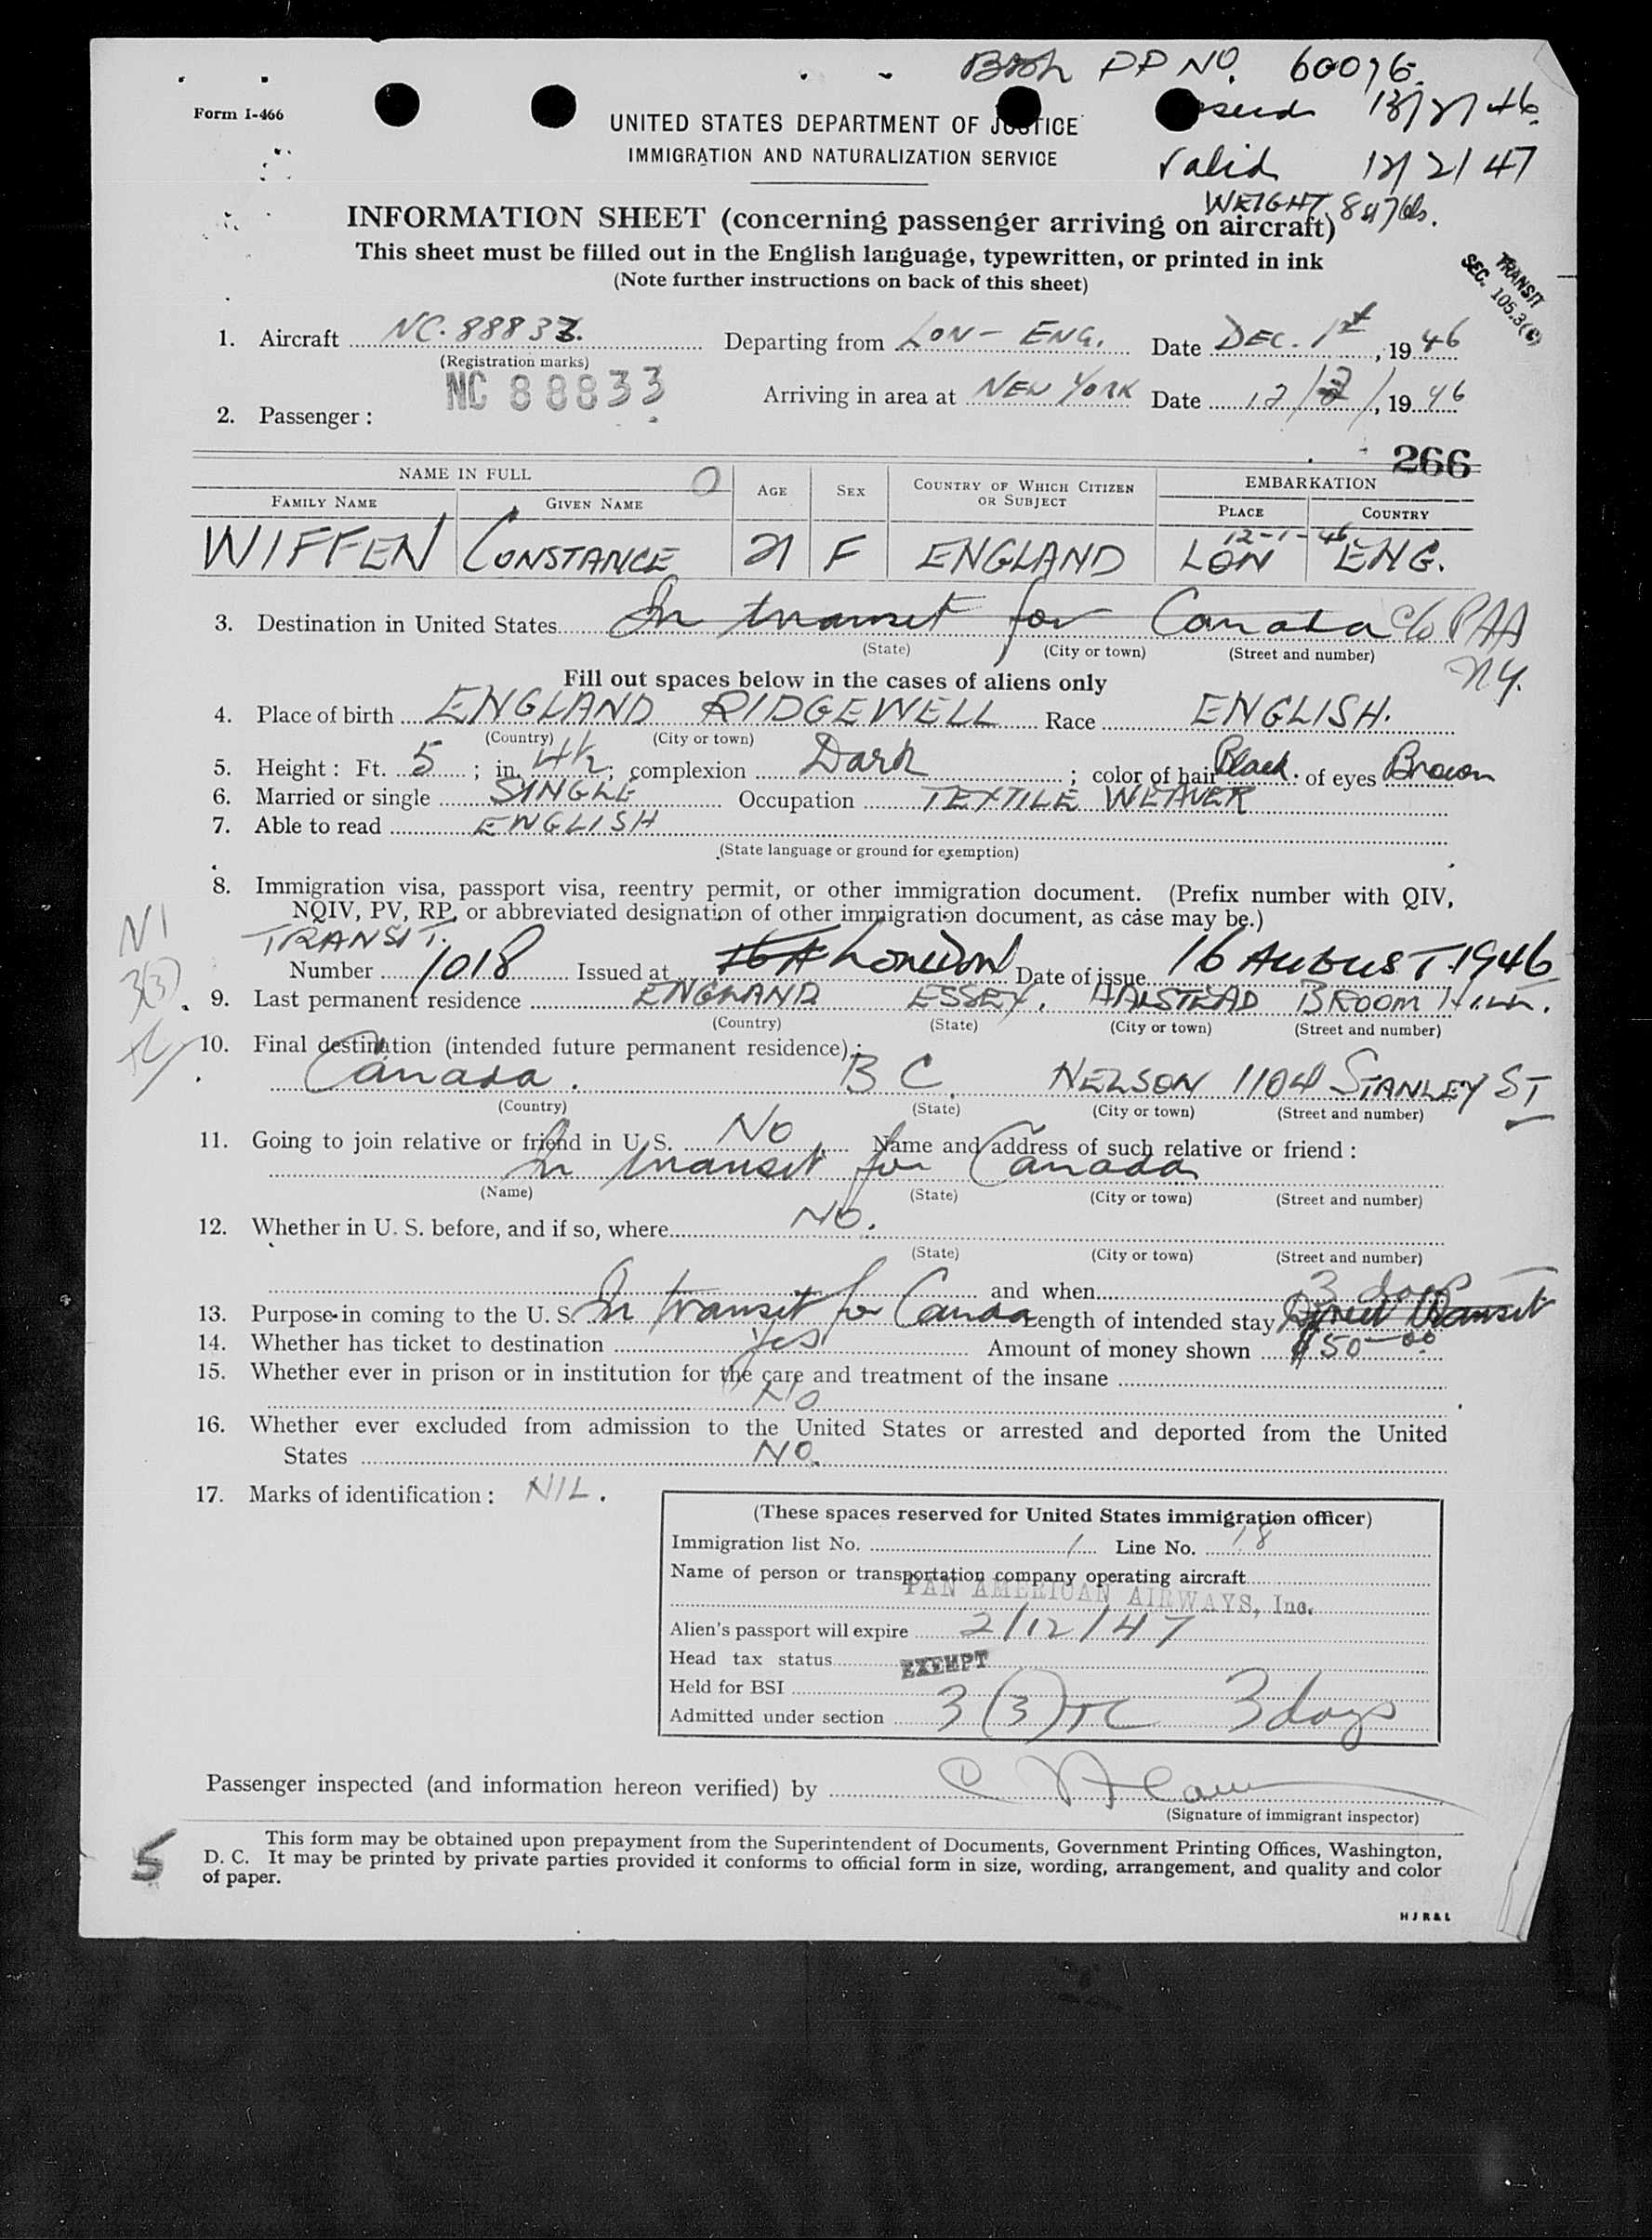 PP NO. 60076.
Form I-466
UNITED STATES DEPARTMENT OF JUSTICE
IMMIGRATION AND NATURALIZATION SERVICE
Valid 12/2/47
WEIGHT
INFORMATION SHEET (concerning passenger arriving on aircraft)
This sheet must be filled out in the English language, typewritten, or printed in ink
(Note further instructions on back of this sheet)
TRANSIT
SEC. 105.3(c)
1. Aircraft NC. 88833. Departing from LON - ENG. Date DEC. 1st, 1946
(Registration marks)
NC 88833
Arriving in area at NEW YORK Date 12/2/, 1946
2. Passenger:
266
NAME IN FULL
FAMILY NAME GIVEN NAME AGE SEX COUNTRY OF WHICH CITIZEN OR SUBJECT EMBARKATION
PLACE COUNTRY
12-1-46
WIFFEN CONSTANCE 21 F ENGLAND LON ENG.
3. Destination in United States In transit for Canada c/o PAA
(State) (City or town) (Street and number)
N.Y.
Fill out spaces below in the cases of aliens only
4. Place of birth ENGLAND RIDGEWELL Race ENGLISH.
(Country) (City or town)
5. Height: Ft. 5; in. 4½; complexion Dark; color of hair Black. of eyes Brown
6. Married or single SINGLE Occupation TEXTILE WEAVER
7. Able to read ENGLISH
(State language or ground for exemption)
8. Immigration visa, passport visa, reentry permit, or other immigration document. (Prefix number with QIV,
NQIV, PV, RP, or abbreviated designation of other immigration document, as case may be.)
TRANSIT.
Number 1018 Issued at London Date of issue 16 AUGUST 1946
3(3)
9. Last permanent residence ENGLAND ESSEX. HALSTEAD BROOM HILL.
(Country) (State) (City or town) (Street and number)
10. Final destination (intended future permanent residence):
Canada. B C. NELSON 1104 STANLEY ST
(Country) (State) (City or town) (Street and number)
11. Going to join relative or friend in U. S. No Name and address of such relative or friend:
In transit for Canada
(Name) (State) (City or town) (Street and number)
12. Whether in U. S. before, and if so, where NO.
(State) (City or town) (Street and number)
and when
3 days
13. Purpose in coming to the U. S. In transit for Canada Length of intended stay Direct Transit
14. Whether has ticket to destination Yes Amount of money shown $50-00
15. Whether ever in prison or in institution for the care and treatment of the insane
NO
16. Whether ever excluded from admission to the United States or arrested and deported from the United
States NO.
17. Marks of identification: NIL.
(These spaces reserved for United States immigration officer)
Immigration list No. 1 Line No. 18
Name of person or transportation company operating aircraft
PAN AMERICAN AIRWAYS, Inc.
Alien's passport will expire 2/12/47
Head tax status EXEMPT
Held for BSI
Admitted under section 3(3) TC 3 days
Passenger inspected (and information hereon verified) by
(Signature of immigrant inspector)
This form may be obtained upon prepayment from the Superintendent of Documents, Government Printing Offices, Washington,
D. C. It may be printed by private parties provided it conforms to official form in size, wording, arrangement, and quality and color
of paper.
5
H J R & L